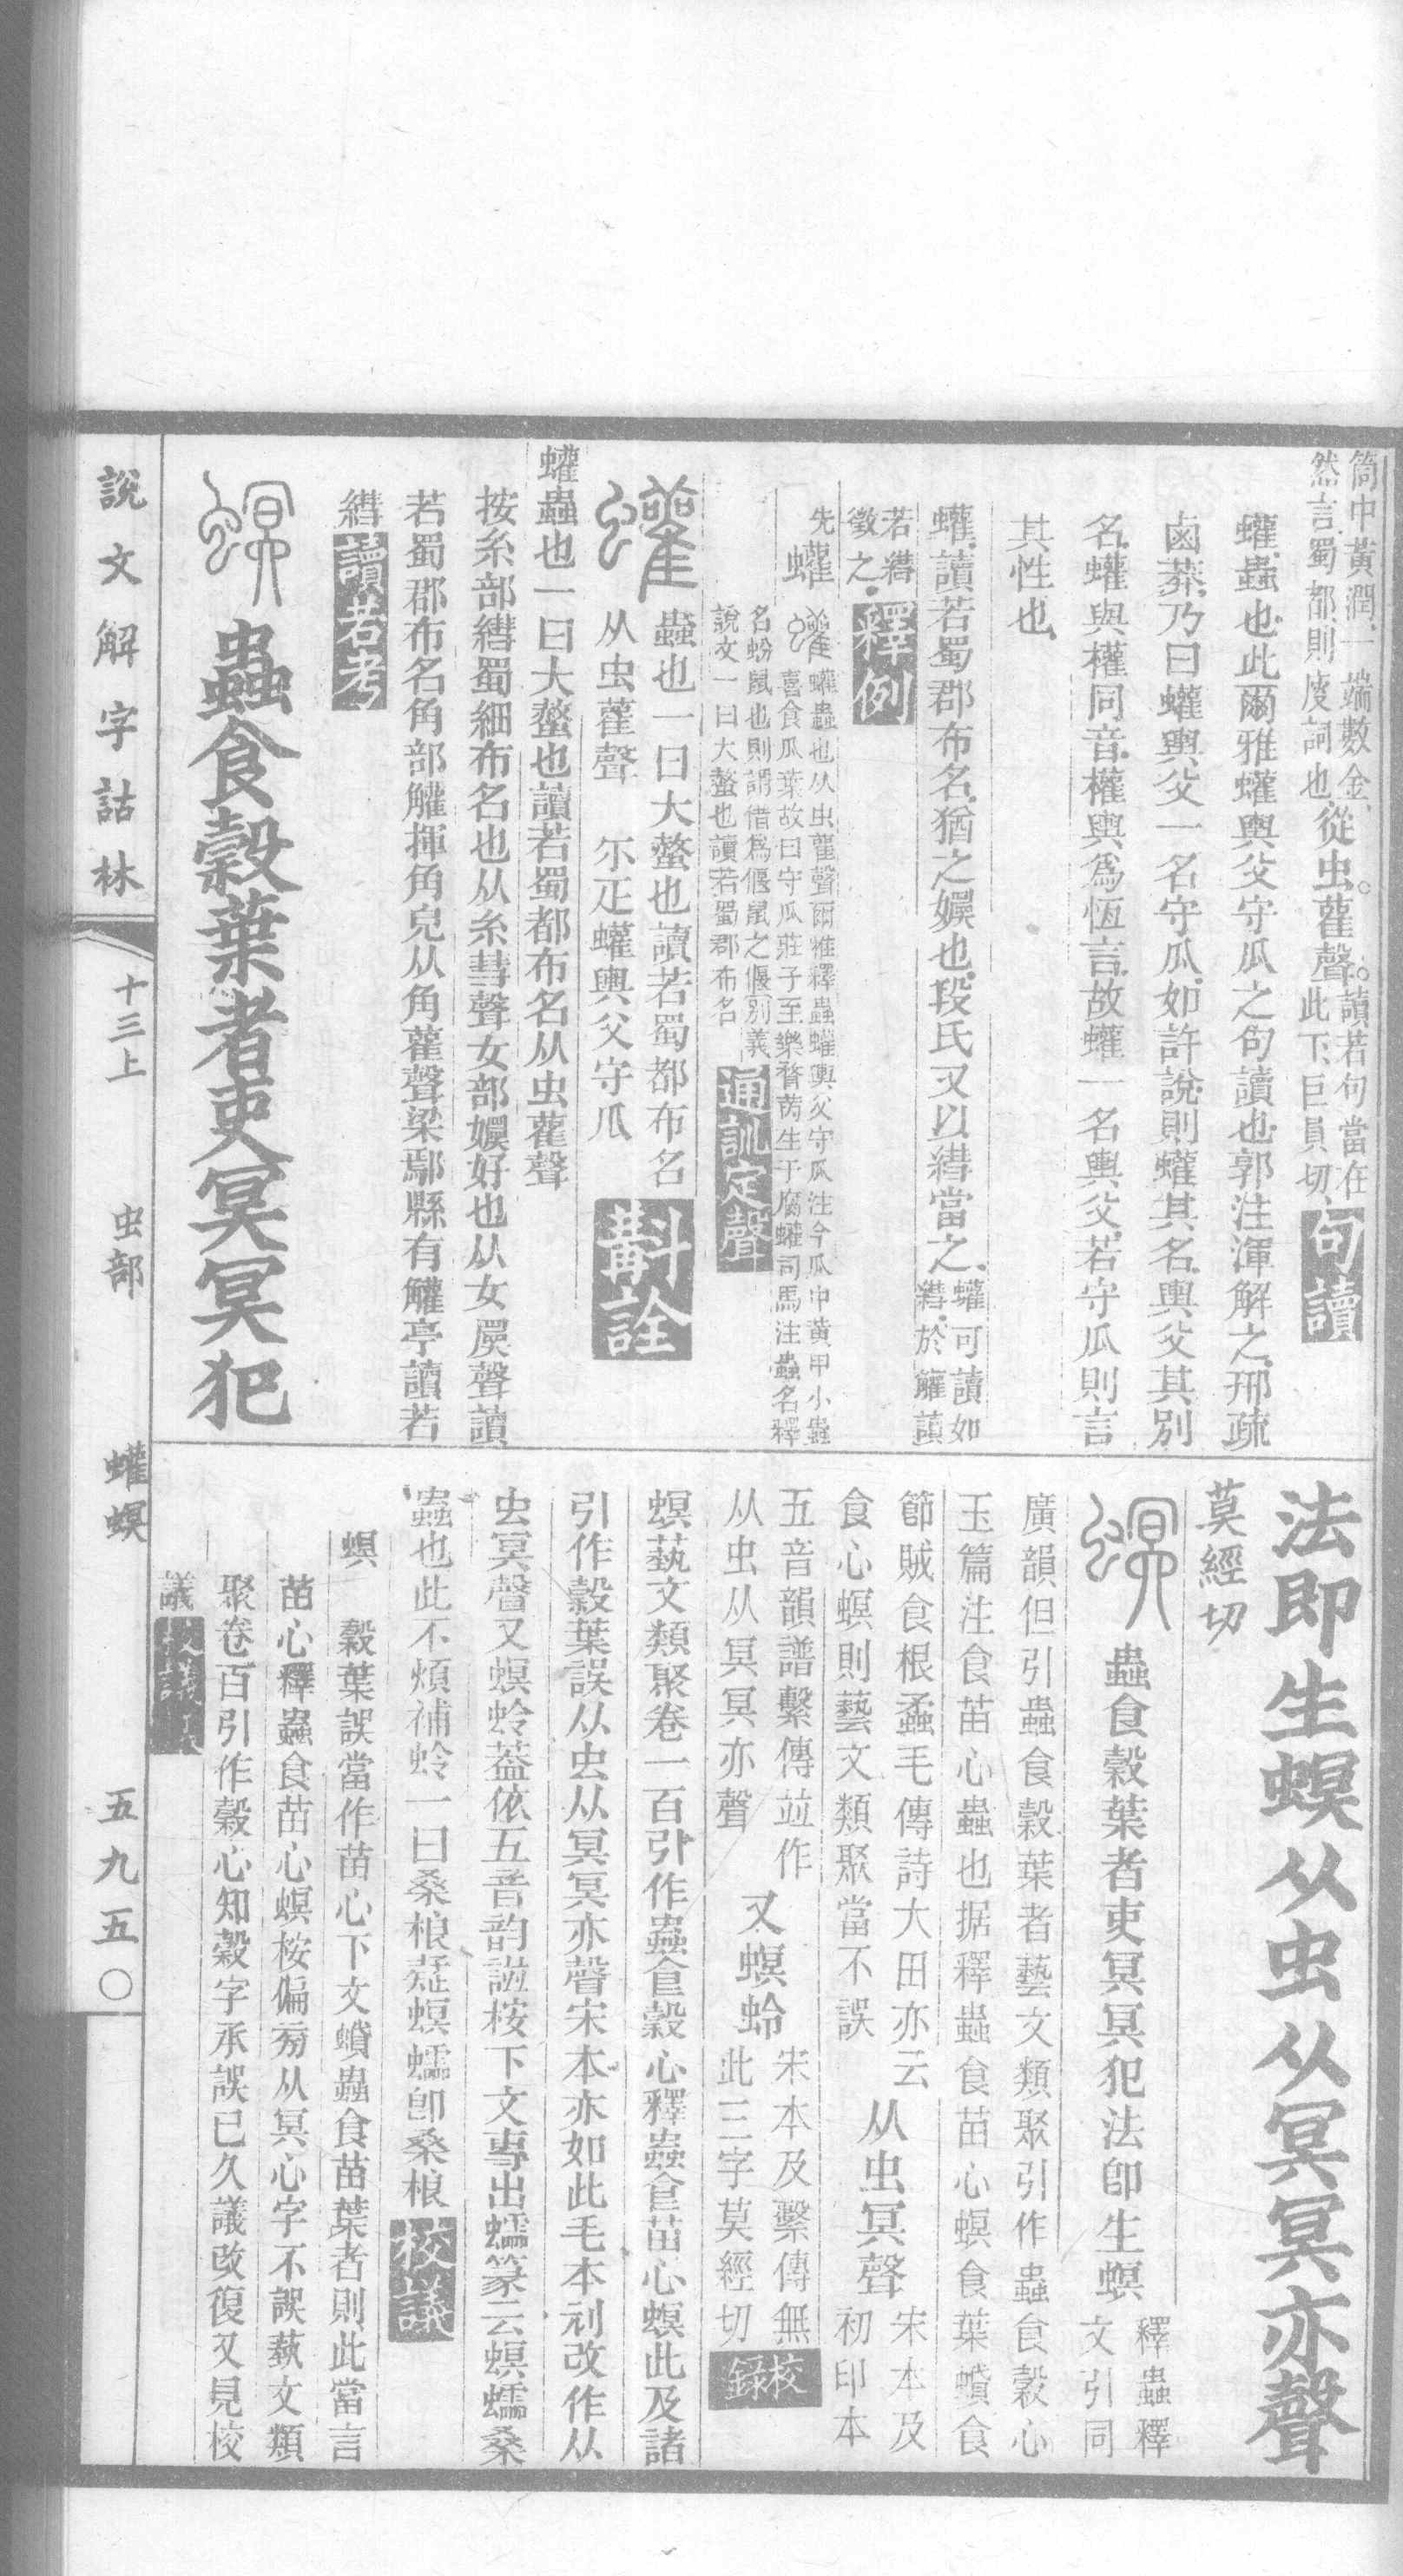 筒中黃潤一端數金
然言蜀都則庋詞也從虫雚聲讀若句當在
此下巨員切句讀
蠸蟲也此爾雅蠸輿父守瓜之句讀也郭注渾解之邢疏
鹵莽乃曰蠸輿父一名守瓜如許說則蠸其名輿父其別
名蠸與權同音權輿爲恆言故蠸一名輿父若守瓜則言
其性也
蠸讀若蜀郡布名猶之嬽也段氏又以䌦當之蠸可讀如
䌦於觿讀
若䌦
徵之釋例
先蠸蠸蟲也从虫雚聲爾雅釋蟲蠸輿父守瓜注今瓜中黃甲小蟲
喜食瓜葉故曰守瓜莊子至樂瞀芮生于腐蠸司馬注蟲名釋
名蚡鼠也則謂借爲偃鼠之偃別義
說文一曰大螫也讀若蜀郡布名通訓定聲
蟲也一曰大螫也讀若蜀都布名
从虫雚聲 尓疋蠸輿父守瓜斠詮
蠸蟲也一曰大螫也讀若蜀都布名从虫雚聲
按糸部䌦蜀細布名也从糸彗聲女部嬽好也从女㚈聲讀
若蜀郡布名角部觿揮角皃从角雚聲梁鄢縣有觿亭讀若
䌦讀若考
蟲食穀葉者吏冥冥犯
法即生螟从虫从冥冥亦聲
莫經切
蟲食穀葉者吏冥冥犯法卽生螟釋蟲釋
文引同
廣韻但引蟲食穀葉者藝文類聚引作蟲食穀心
玉篇注食苗心蟲也据釋蟲食苗心螟食葉蟘食
節賊食根蟊毛傳詩大田亦云
食心螟則藝文類聚當不誤从虫冥聲宋本及
初印本
五音韻譜繫傳並作
从虫从冥冥亦聲又螟蛉宋本及繫傳無
此三字莫經切校錄
螟蓺文類聚卷一百引作蟲食穀心釋蟲食苗心螟此及諸
引作穀葉誤从虫从冥冥亦聲宋本亦如此毛本刓改作从
虫冥聲又螟蛉葢依五音韵譜桉下文專出蠕篆云螟蠕桑
蟲也此不煩補蛉一曰桑桹葢螟蠕卽桑桹校議
螟 穀葉誤當作苗心下文蟘蟲食苗葉者則此當言
苗心釋蟲食苗心螟桉偏旁从冥心字不誤蓺文類
聚卷百引作穀心知穀字承誤已久議改復又見校
議校議
說文解字詁林
十三上
虫部
蠸螟
五九五〇